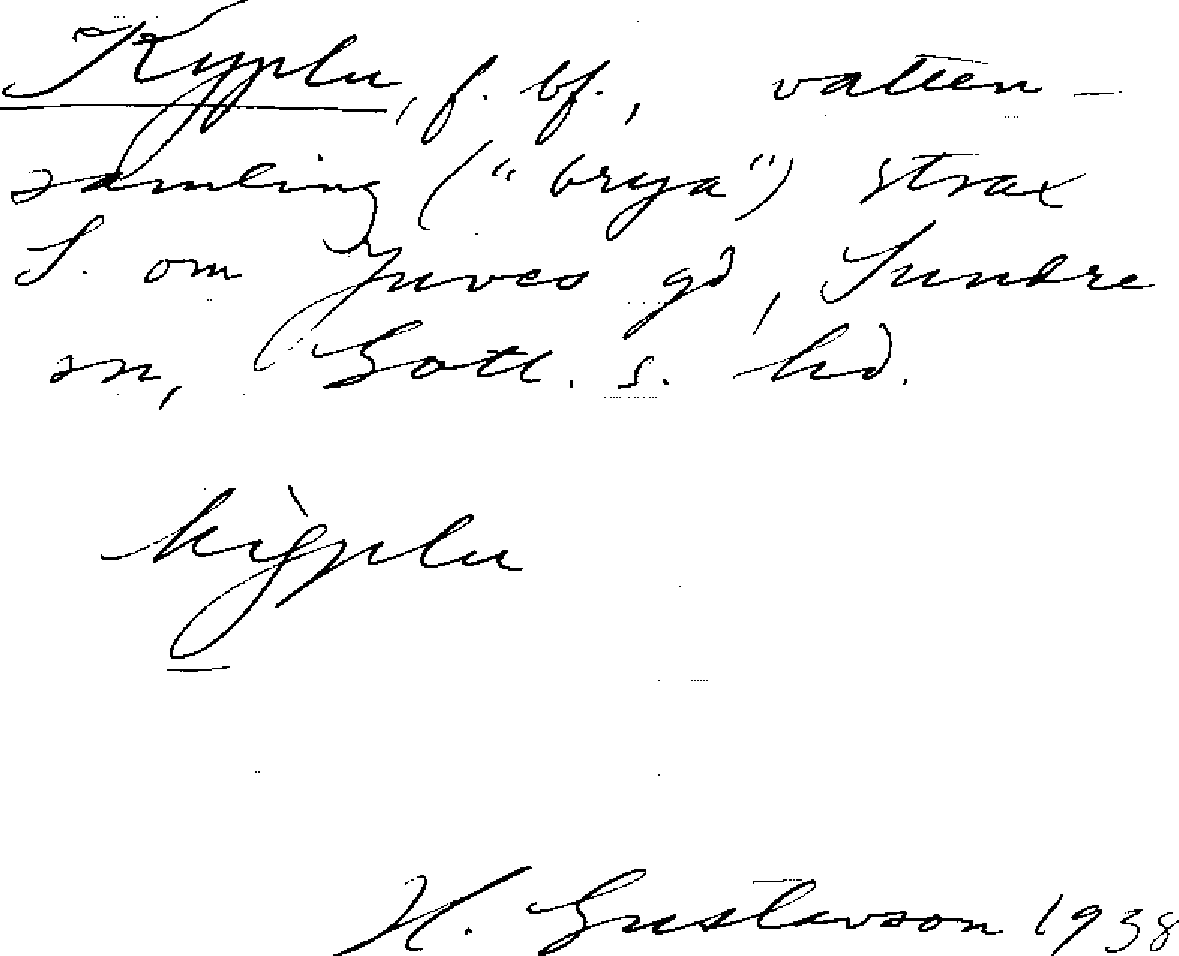 Kypplu, f. bf., vatten-
samling ("brya") strax
S. om Juves gd, Sundre
sn, Gotl. s. hd.
H. Gustavson 1938